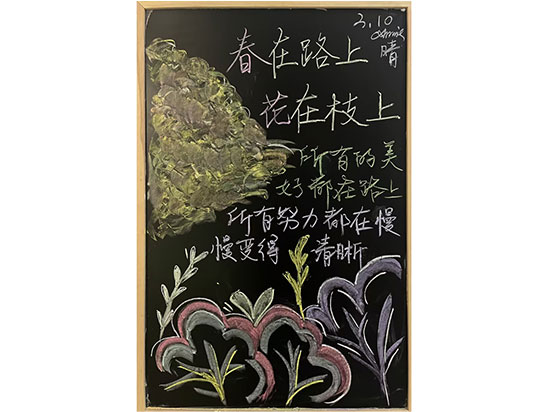 3.10
晴
春在路上
花在枝上
所有的美
好都在路上
所有努力都在慢
慢变得 清晰